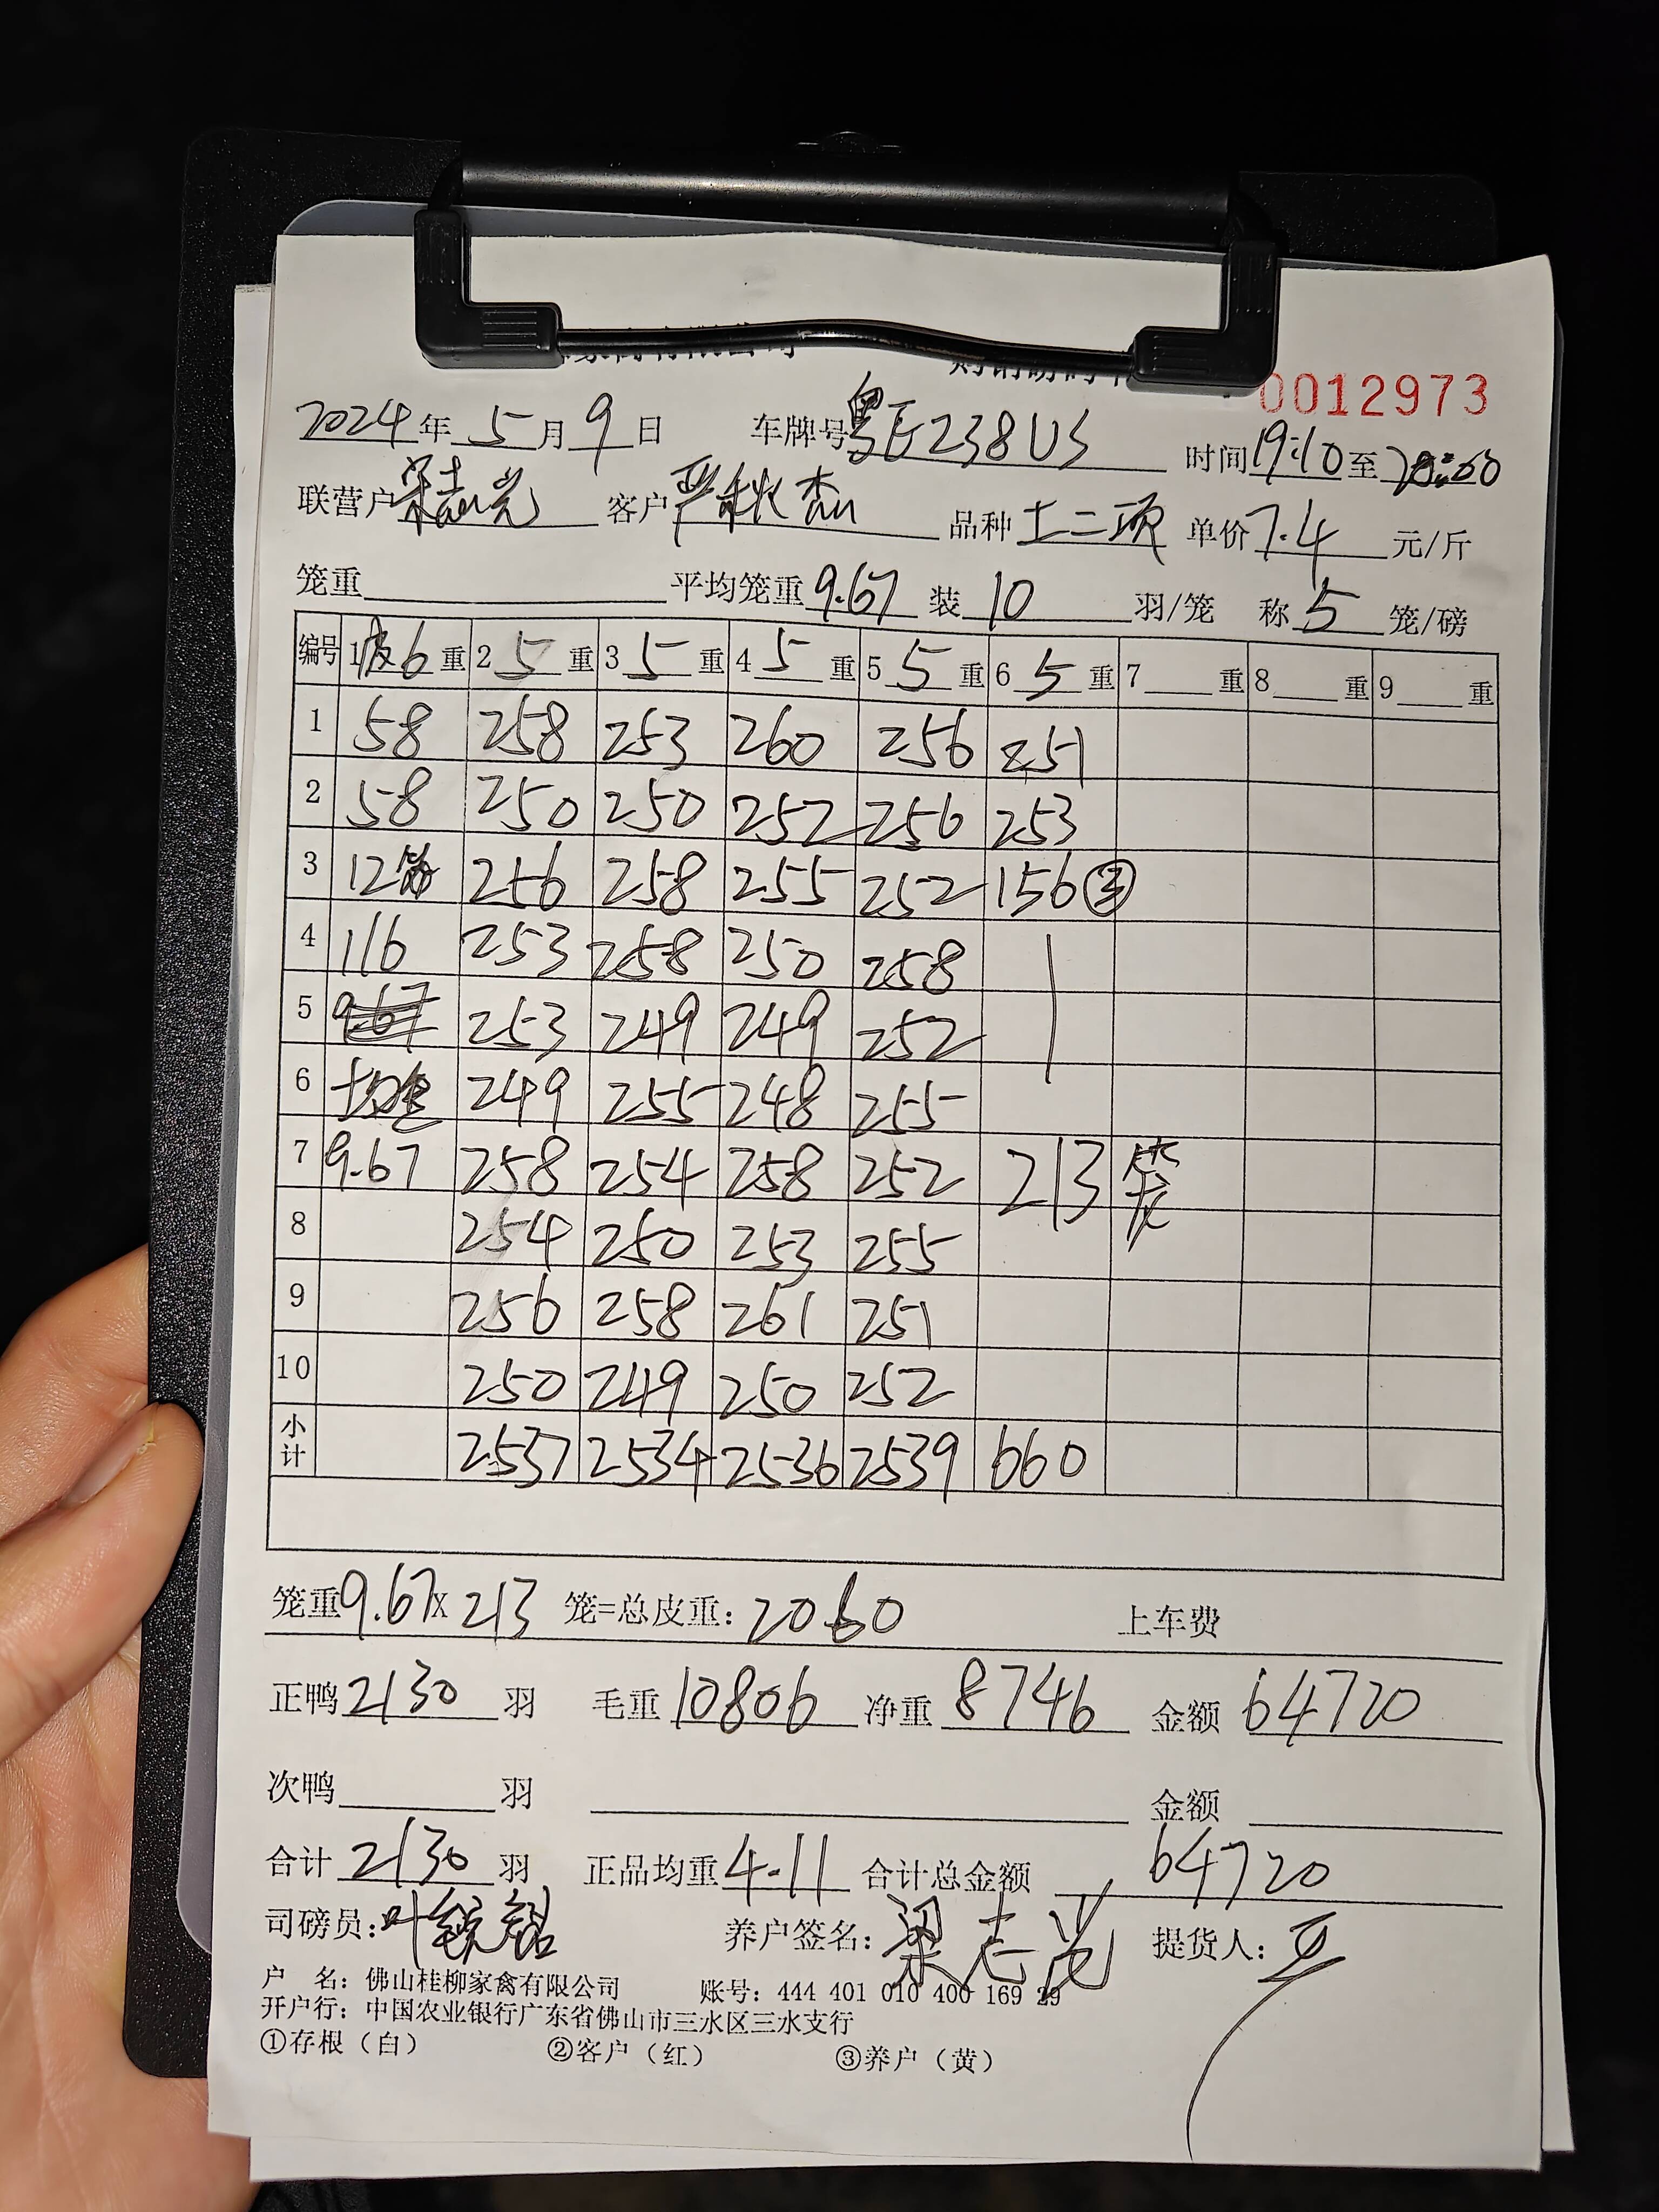 0012973
2024年5月9日 车牌号粤E238US 时间19:10至
联营户梁志光 客户严秋杰 品种土二项 单价7.4元/斤
笼重 平均笼重9.67 装10羽/笼 称5笼/磅
编号 1皮6重 2 5重 3 5重 4 5重 5 5重 6 5重 7重 8重 9重
1 58 258 253 260 256 251
2 58 250 250 252 256 253
3 12笼 256 258 255 252 156③
4 116 253 258 250 258
5 9.67 253 249 249 252
6 均重 249 255 248 255
7 9.67 258 254 258 252 213笼
8 254 250 253 255
9 256 258 261 251
10 250 249 250 252
小计 2537 2534 2536 2539 660
笼重9.67X213笼=总皮重:2060 上车费
正鸭2130羽 毛重10806 净重8746 金额64720
次鸭 羽 金额
合计2130羽 正品均重4.11 合计总金额64720
司磅员:叶 养户签名:梁志光 提货人:
户 名:佛山桂柳家禽有限公司 账号:444 401 010 400 169 29
开户行:中国农业银行广东省佛山市三水区三水支行
①存根(白) ②客户(红) ③养户(黄)